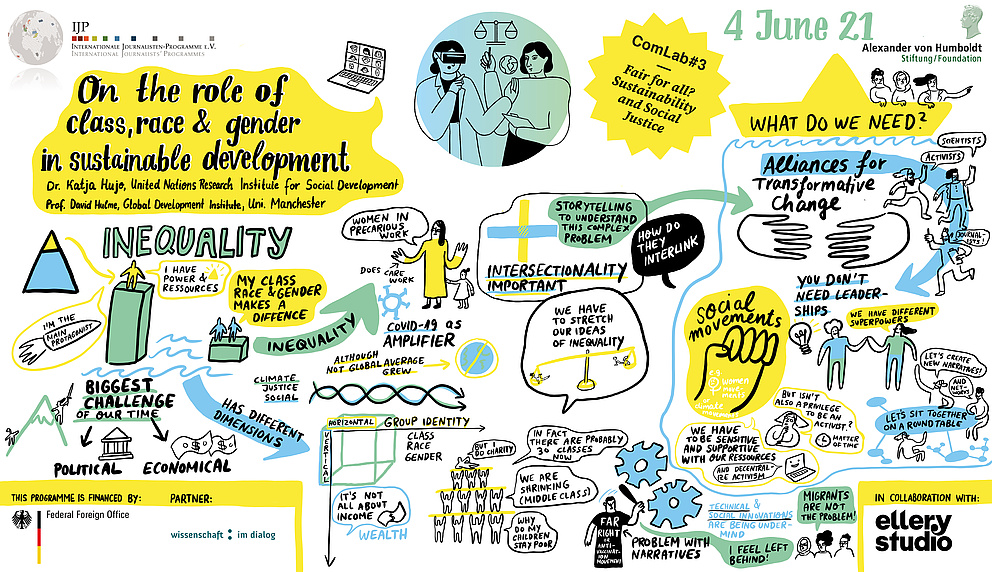 IJP
INTERNATIONALE JOURNALISTEN-PROGRAMME E.V.
INTERNATIONAL JOURNALISTS' PROGRAMMES
On the role of
class, race & gender
in sustainable development
Dr. Katja Hujo, United Nations Research Institute for Social Development
Prof. David Hulme, Global Development Institute, Uni. Manchester
ComLab#3
Fair for all?
Sustainability
and Social
Justice
4 June 21
Alexander von Humboldt
Stiftung/Foundation
INEQUALITY
I HAVE
POWER &
RESSOURCES
I'M THE
MAIN
PROTAGONIST
MY CLASS
RACE & GENDER
MAKES A
DIFFENCE
INEQUALITY
WOMEN IN
PRECARIOUS
WORK
DOES CARE
WORK
COVID-19 AS
AMPLIFIER
ALTHOUGH
NOT GLOBAL AVERAGE
GREW
CLIMATE
JUSTICE
SOCIAL
BIGGEST
CHALLENGE
OF OUR TIME
POLITICAL
ECONOMICAL
HAS DIFFERENT
DIMENSIONS
HORIZONTAL
GROUP IDENTITY
VERTICAL
CLASS
RACE
GENDER
IT'S NOT
ALL ABOUT
INCOME
WEALTH
STORYTELLING
TO UNDERSTAND
THIS COMPLEX
PROBLEM
INTERSECTIONALITY
IMPORTANT
HOW DO
THEY
INTERLINK
WE HAVE
TO STRETCH
OUR IDEAS
OF INEQUALITY
BUT I
DO CHARITY
IN FACT
THERE ARE PROBABLY
30 CLASSES
NOW
WE ARE
SHRINKING
(MIDDLE CLASS)
WHY
DO MY
CHILDREN
STAY POOR
FAR
RIGHT
OR ANTI-
VACCINATION
MOVEMENT
PROBLEM WITH
NARRATIVES
TECHNICAL &
SOCIAL INNOVATIONS
ARE BEING UNDER-
MIND
I FEEL LEFT
BEHIND!
MIGRANTS
ARE NOT
THE PROBLEM!
WHAT DO WE NEED?
Alliances for
Transformative
Change
SCIENTISTS
ACTIVISTS
JOURNAL-
ISTS!
YOU DON'T
NEED LEADER-
SHIPS
WE HAVE DIFFERENT
SUPERPOWERS
social
movements
eg
women
move-
ments
or
climate
movement
BUT ISN'T
ALSO A PRIVILEGE
TO BE AN
ACTIVIST?
MATTER
OF TIME
WE HAVE
TO BE SENSITIVE
AND SUPPORTIVE
WITH OUR RESSOURCES
AND DECENTRAL-
IZE ACTIVISM
LET'S CREATE
NEW NARRATIVES!
AND
NET-
WORKS!
LET'S SIT TOGETHER
ON A ROUND TABLE
THIS PROGRAMME IS FINANCED BY:
Federal Foreign Office
PARTNER:
wissenschaft : im dialog
IN COLLABORATION WITH:
ellery
studio